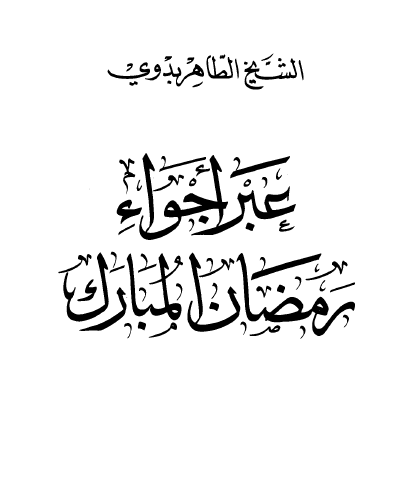 الشَّيخ الطَّاهِر بَدْوِيْ
عَبْرَ أَجْوَاءِ
رَمَضَانَ الْمُبَارَك